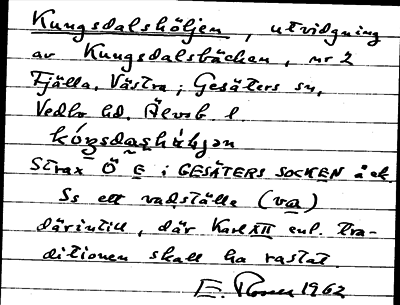 Kungsdalshöljen, utvidgning
av Kungsdalsbäcken, nr 2
Fjälla, Västra, Gesäters sn,
Vedbo hd, Älvsb. l.
Strax Ö E i GESÄTERS SOCKEN å ek.
Ss ett vadställe (va)
därintill, där Karl XII enl. tra-
ditionen skall ha rastat.
E. 1962